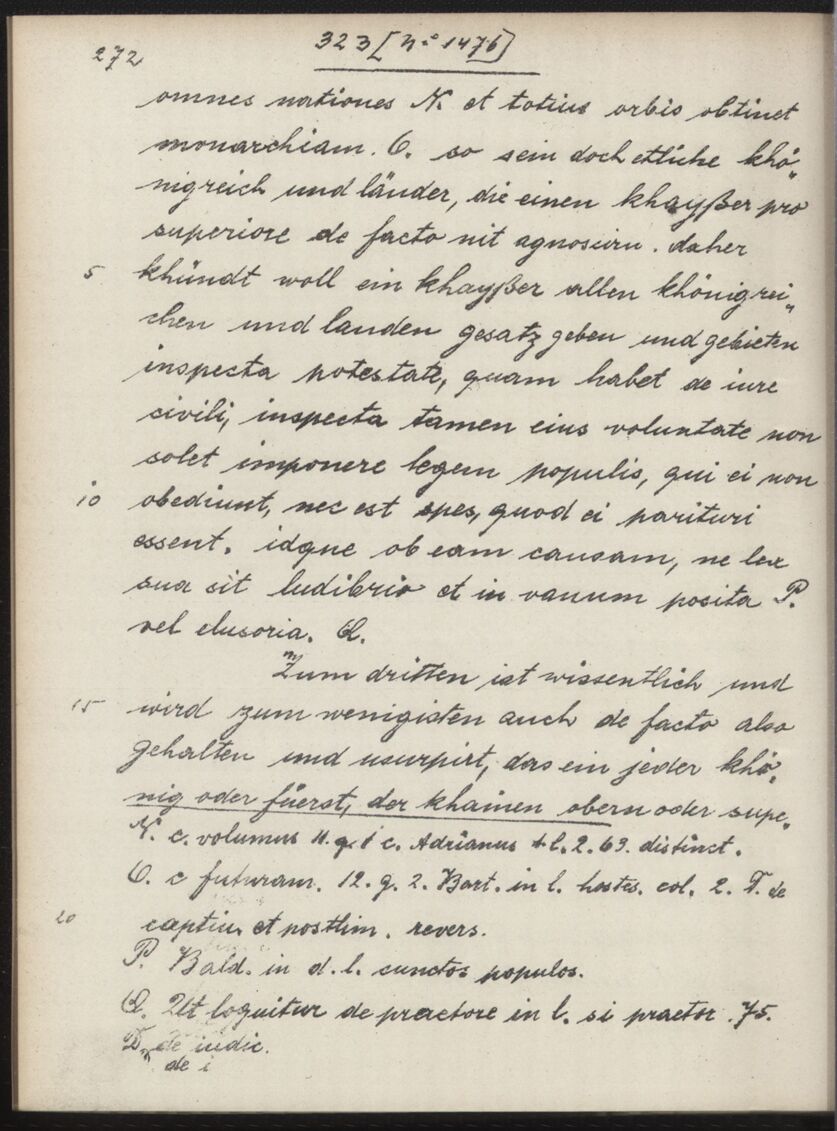 272
323 [No 1476]
omnes nationes N. et totius orbis obtinet
monarchiam. O. so sein doch etliche khö„
nigreich und länder, die einen khayßer pro
superiore de facto nit agnosirn. daher
5 khündt woll ein khayßer allen khönigrei„
chen und landen gesatz geben und gebieten
inspecta potestate, quam habet de iure
civili, inspecta tamen eius voluntate non
solet imponere legem populis, qui ei non
10 obediunt, nec est spes, quod ei parituri
essent. idque ob eam causam, ne lex
sua sit ludibrio et in vanum posita P.
vel elusoria. Q.
Zum dritten ist wissentlich und
15 wird zum wenigisten auch de facto also
gehalten und usurpirt, das ein jeder khö„
nig oder füerst, der khainen obern oder supe„
N. c. volumus 11. q. 1 c. Adrianus 2. 63. distinct.
O. c futuram. 12. q. 2. Bart. in l. hostes. col. 2. D. de
20 captiu. et postlim. revers.
P. Bald. in d. l. cunctos populos.
Q. Ut loquitur de praetore in l. si praetor. 75.
D. de iudic.
de i